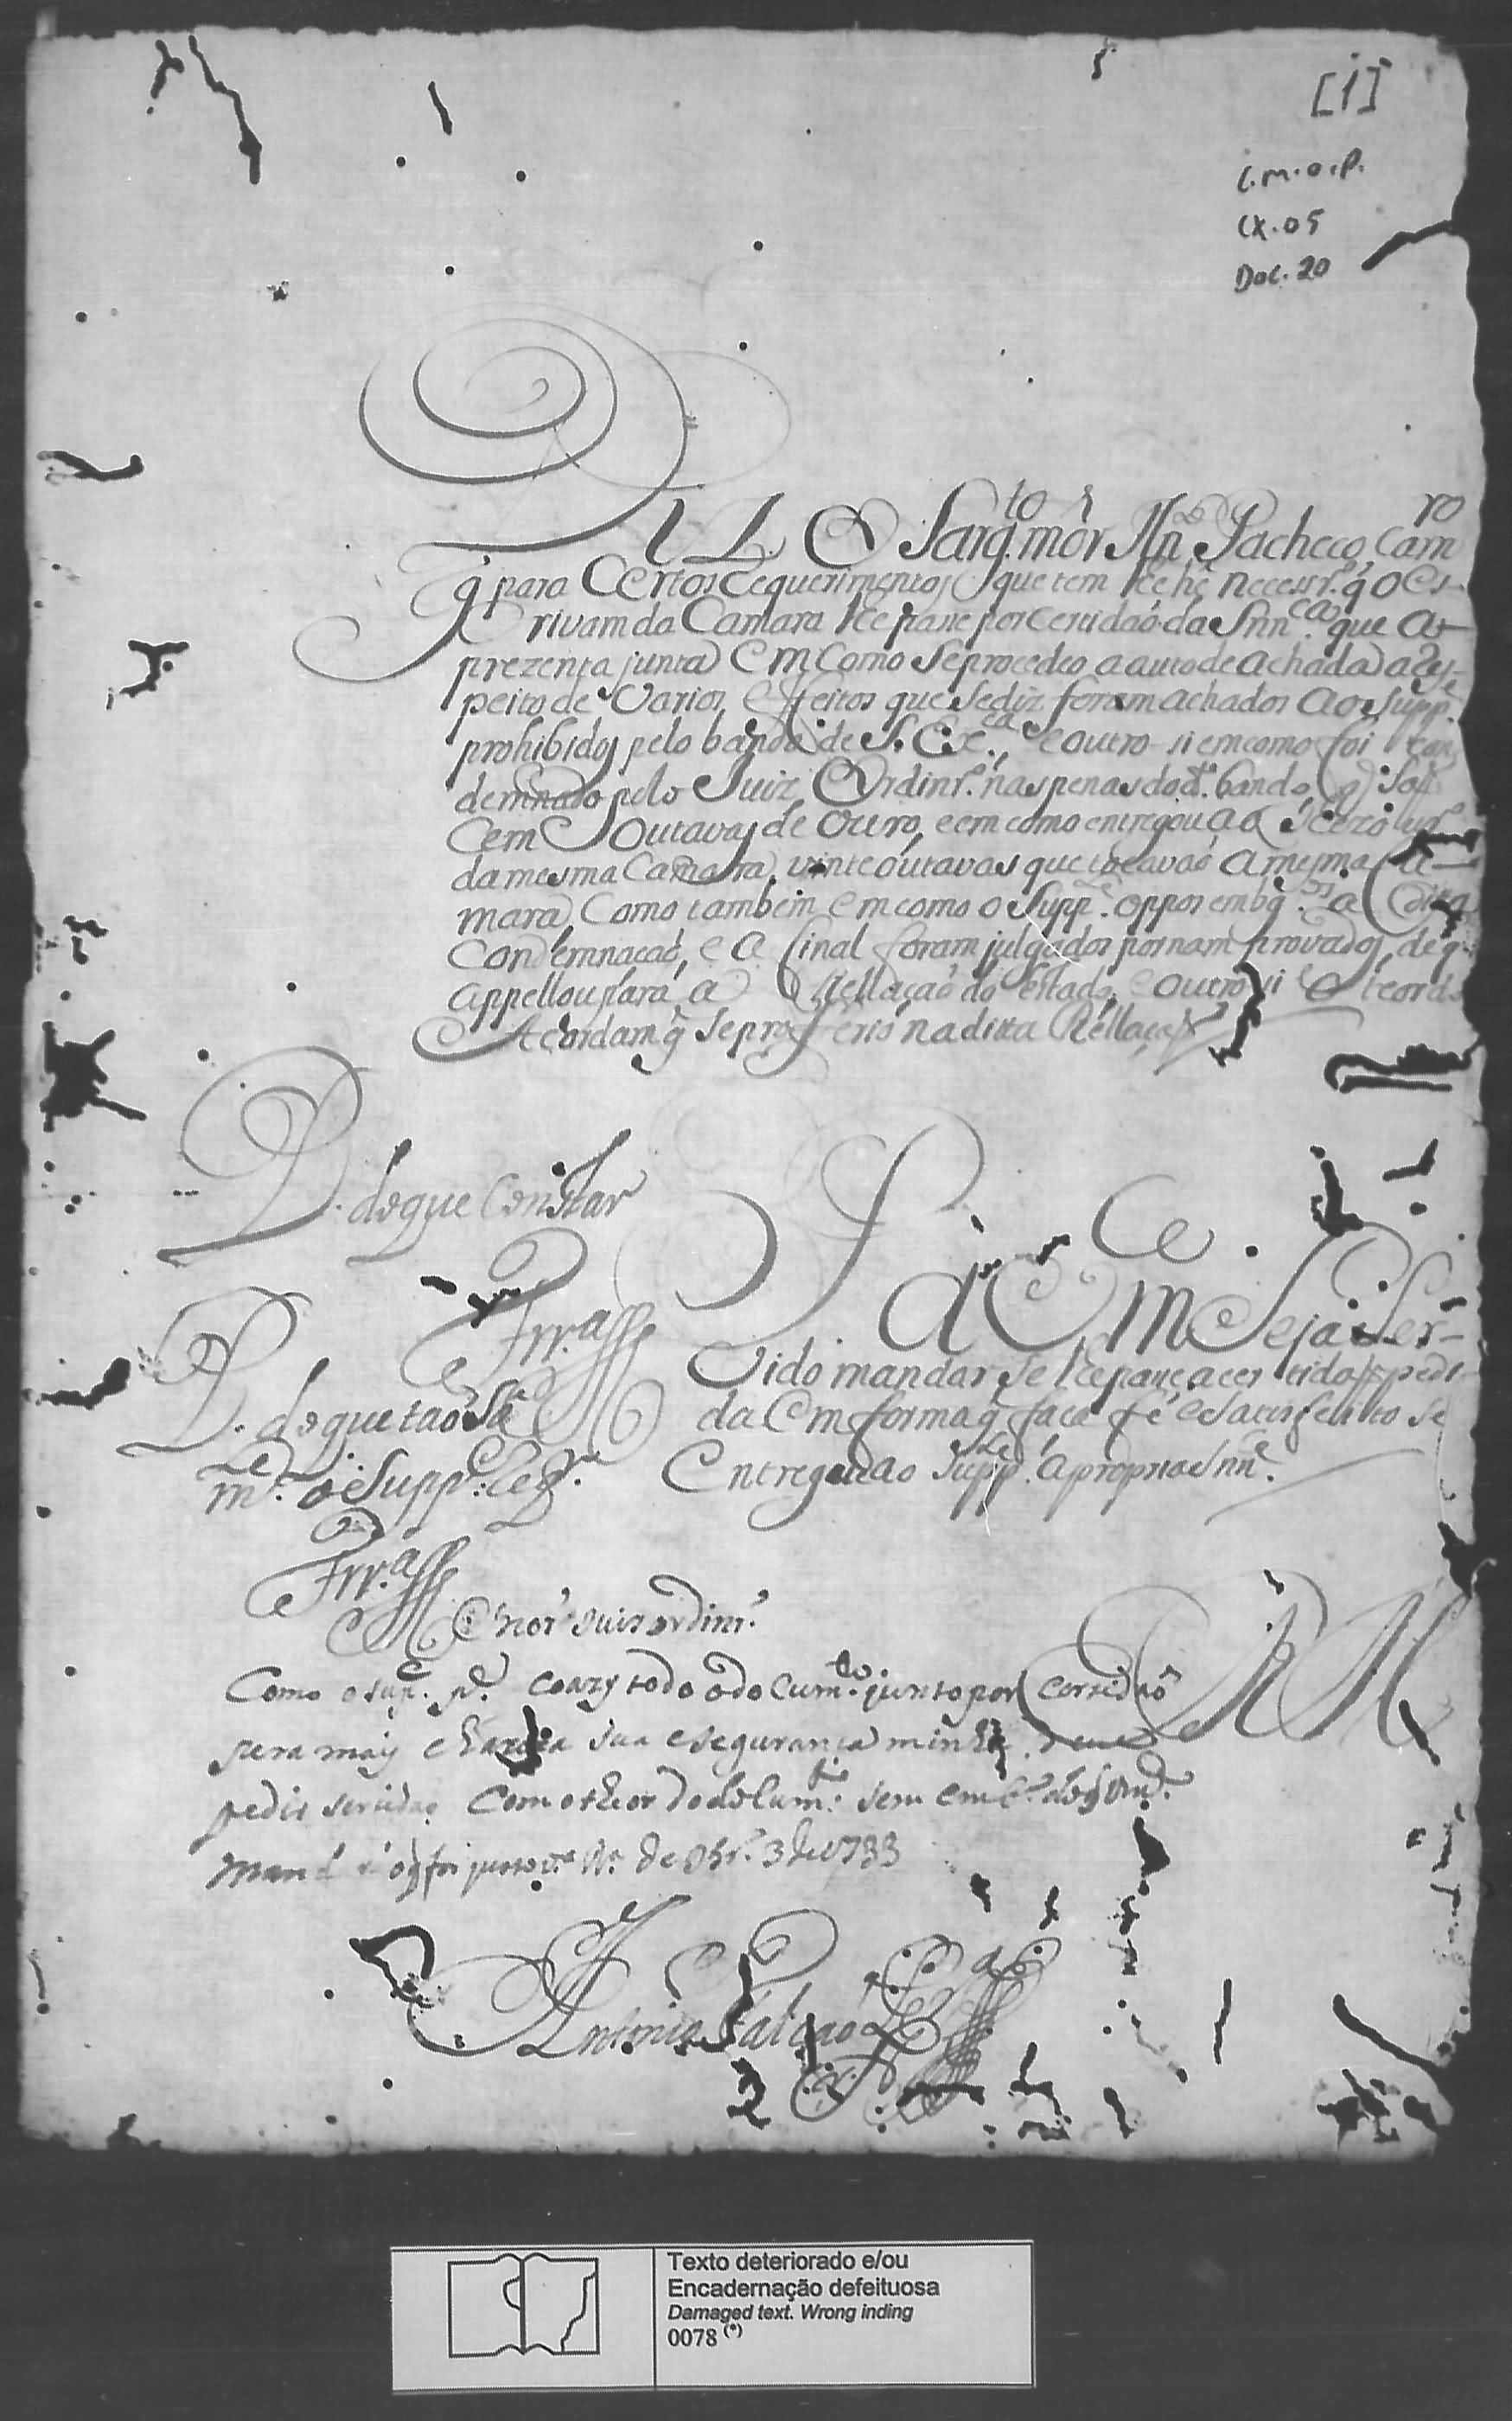 [1]
C.M.O.P.
CX.05
Doc. 20
O Sarg.to mór Mn.el Pacheco
q̃ para Certos requerimentos que tem lhe he necessr.º q̃ o Es-
crivam da Camara lhe passe por certidaó da Snn.ca que a-
prezenta junta Em como Se procedeo a auto de achada a Res-
peito de Varios effeitos que Se diz foram achados ao Supp.e
prohibidos pelo bando de S. Ex.ca, e outro si em como foi con-
demnado pelo Juiz Ordinr.º nas penas do d.º bando
Cem Outavas de Ouro, e em como entregou ao
da mesma Camara, vinte outavas que tocavaó a mesma Ca-
mara, Como tambem Em como o Supp.e oppos embg.os a ditta
Condemnaçaó, e a final foram julgados por nam provados, de q̃
appellou para a Rellaçaó do Estado, e outro si o teor do
Acordam q̃ Se proferio na ditta Rellaçaó
P. do que Constar
Frr.a
P. a V M.ce Seja Ser-
vido mandar Se lhe passe a certidaó pedi-
da Em forma q̃ faça fé e Satisfeito Se
Entregue ao Supp.e a propria Snn.ca
E R M
P. do que taó Só
m.te o Supp.e
Frr.a
Snor Juis ordinr.º
Como o sup.e p.e todo o do Cum.to junto por Certidaó
pera mays clareza sua e segurança minha deve
pedir sertidaó Com o theor do doCum.to sem
Mand de 8br.º 3 de 1733
Antonio Falcaó
2
Texto deteriorado e/ou
Encadernação defeituosa
Damaged text. Wrong inding
0078 (*)